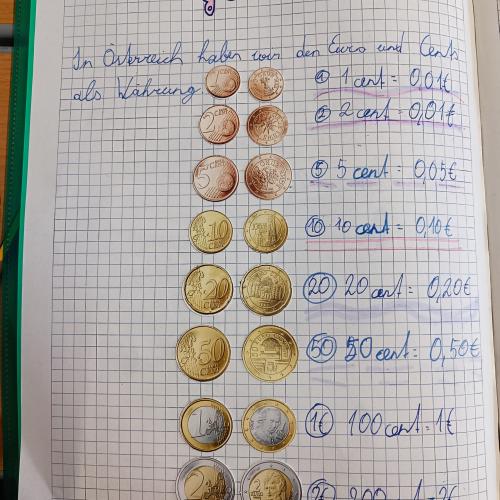 In Österreich haben wir den Euro und Cent
als Währung.
① 1 cent = 0,01€
② 2 cent = 0,01€
⑤ 5 cent = 0,05€
⑩ 10 cent = 0,10€
⑳ 20 cent = 0,20€
㊿ 50 cent = 0,50€
1€ 100 cent = 1€
2€ 200 cent = 2€
1
2
5
10
20
50 CENT
1
2